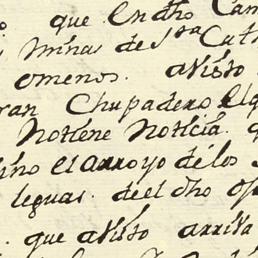 que En dho Cam
s minas de Sta Cath
omenos. a visto
ran Chupadero el q
Notiene Noticia. q
ino el arroyo de los
leguas. de el dho o
. que a visto arriva